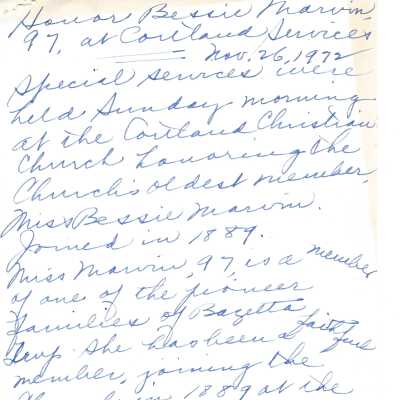 Honor Bessie Marvin,
97, at Cortland Services
Nov. 26, 1972
Special services were
held Sunday morning
at the Cortland Christian
Church honoring the
Church's oldest member,
Miss Bessie Marvin.
Joined in 1889.
Miss Marvin, 97, is a member
of one of the pioneer
families of Bazetta
Twp. She has been a faithful
member, joining the
Church in 1889 at the